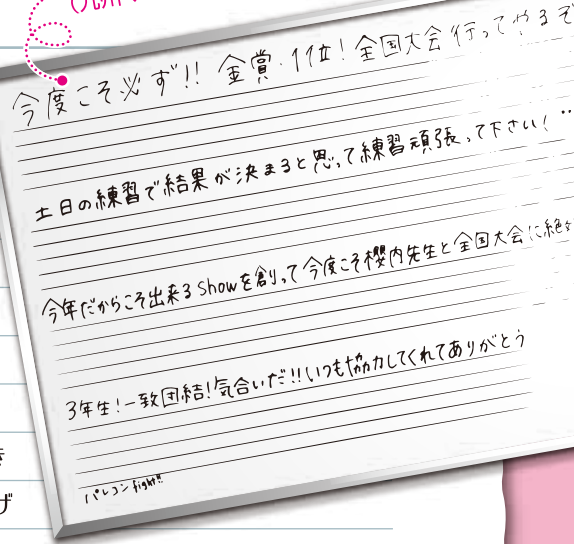 今度こそ必ず!! 金賞・1位! 全国大会行ってやるぞ
土日の練習で結果が決まると思って練習頑張って下さい!
今年だからこそ出来るshowを創って今度こそ櫻内先生と全国大会に絶
3年生!一致団結!気合いだ!!いつも協力してくれてありがとう
パレコンfight!!
き
げ